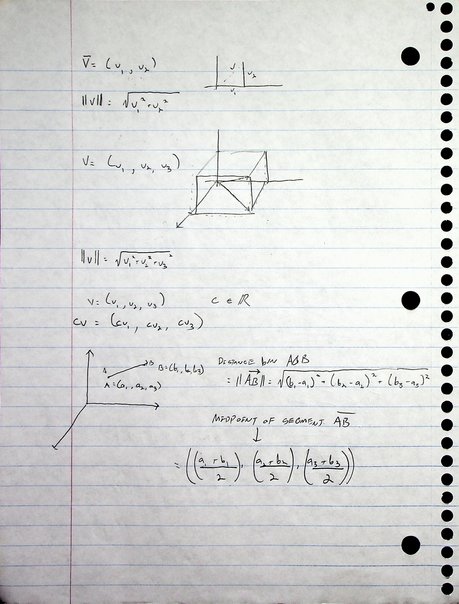 V̄ = (v₁, v₂)
v v₂
v₁
||v|| = √(v₁² + v₂²)
V = (v₁, v₂, v₃)
||v|| = √(v₁² + v₂² + v₃²)
v = (v₁, v₂, v₃) c ∈ ℝ
cv = (cv₁, cv₂, cv₃)
B B = (b₁, b₂, b₃) DISTANCE b/w A&B
A A = (a₁, a₂, a₃) = ||AB⃗|| = √((b₁-a₁)² + (b₂-a₂)² + (b₃-a₃)²)
MIDPOINT OF SEGMENT A̅B̅
↓
= ((a₁+b₁/2), (a₂+b₂/2), (a₃+b₃/2))